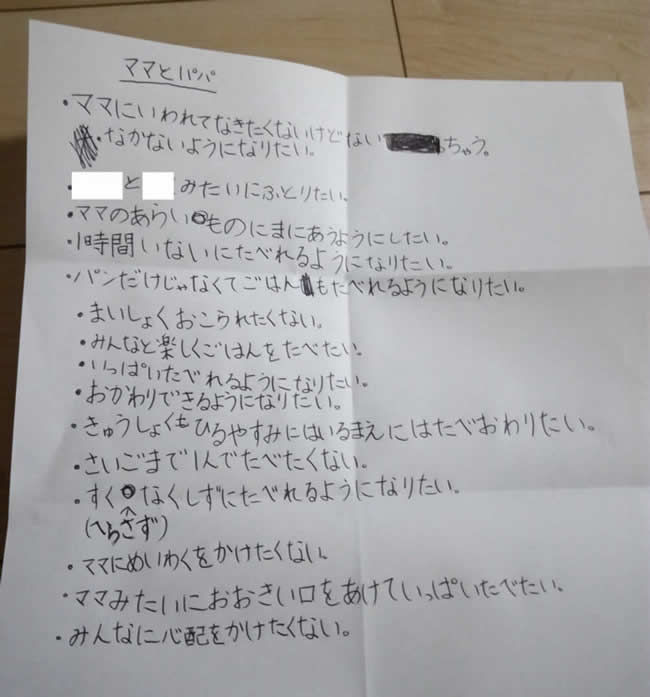 ママとパパ
・ママにいわれてなきたくないけどないちゃう。
・なかないようになりたい。
・ と みたいにふとりたい。
・ママのあらいものにまにあうようにしたい。
・1時間いないにたべれるようになりたい。
・パンだけじゃなくてごはんもたべれるようになりたい。
・まいしょくおこられたくない。
・みんなと楽しくごはんをたべたい。
・いっぱいたべれるようになりたい。
・おかわりできるようになりたい。
・きゅうしょくもひるやすみにはいるまえにはたべおわりたい。
・さいごまで1人でたべたくない。
・すくなくしずにたべれるようになりたい。
(へらさず)
・ママにめいわくをかけたくない。
・ママみたいにおおきい口をあけていっぱいたべたい。
・みんなに心配をかけたくない。